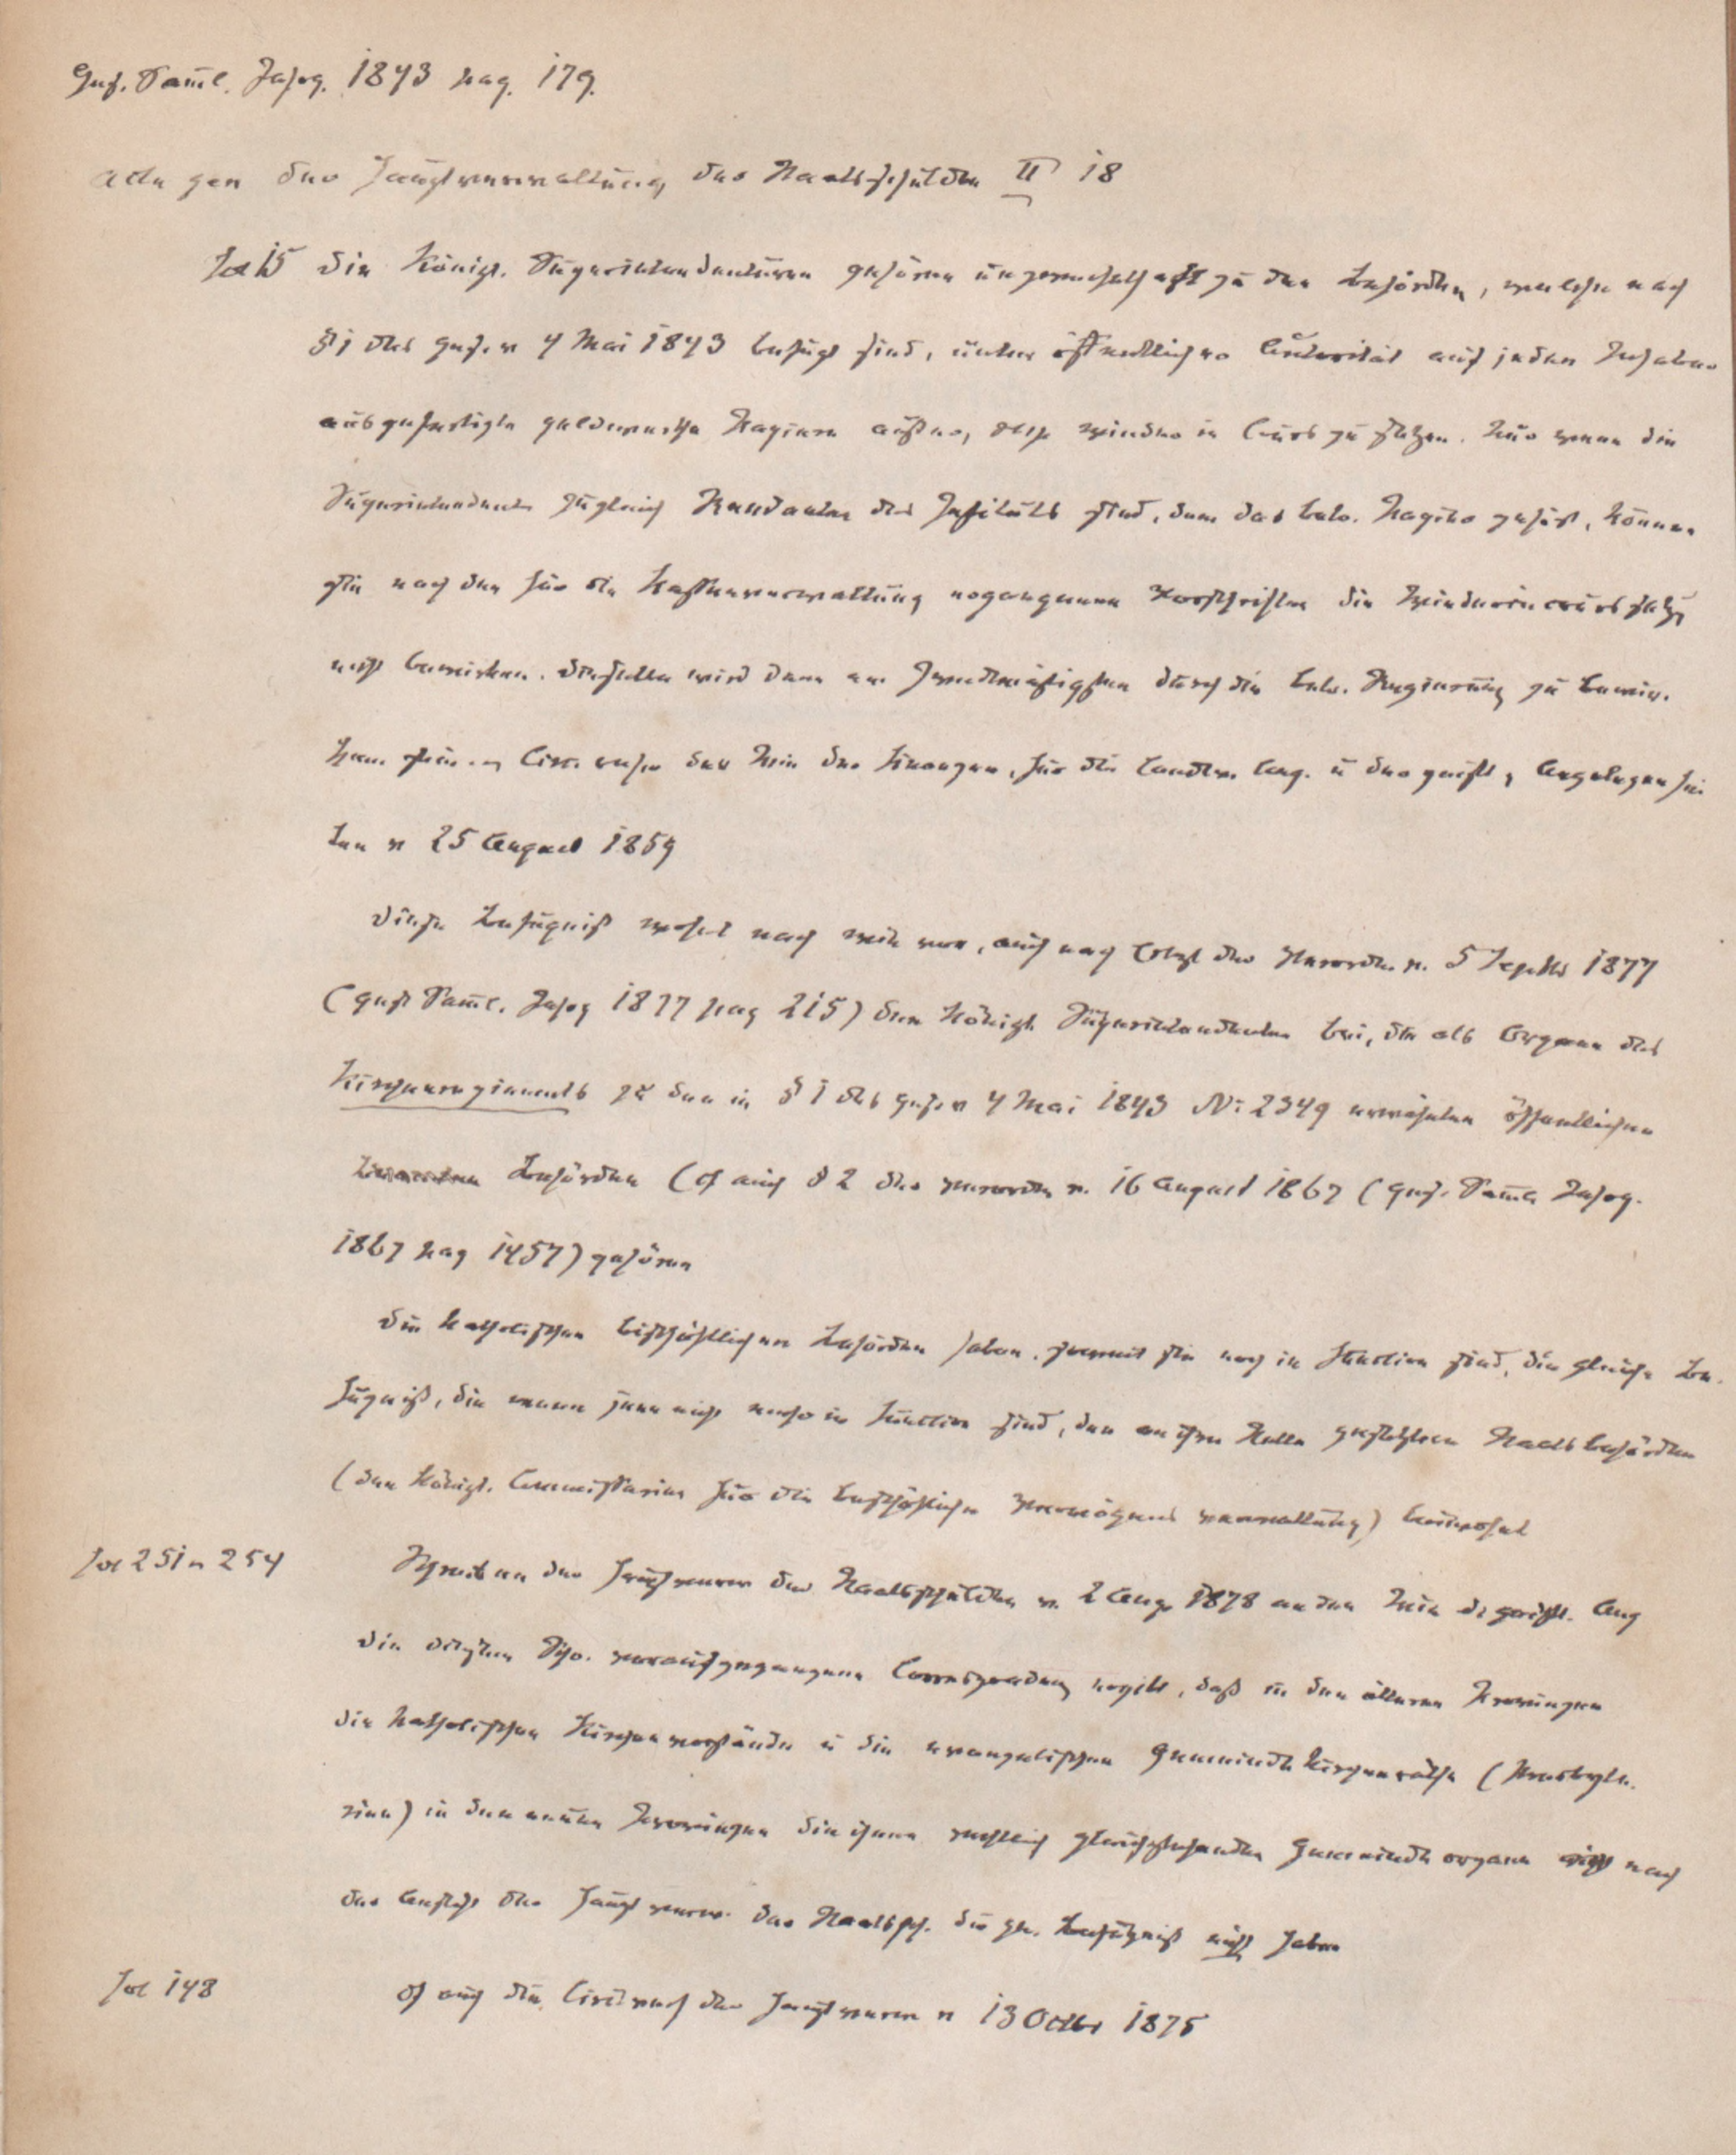 Ges. Samml. Jahrg. 1843 pag. 179.
Acta gen der Hauptverwaltung der Staatsschulden II 18
Fol 15 Die Königl. Superintendenturen gehören unzweifelhaft zu den Behörden, welche nach
§ 1 des Ges. v 4 Mai 1843 befugt sind, unter öffentlicher Autorität auf jeden Inhaber
ausgefertigte geldwerthe Papiere außer, resp wieder in Curs zu setzen. Nur wenn die
Superintendenten zugleich Rendanten des Instituts sind, dem das betr. Papier gehört, können
sie nach den für die Kassenverwaltung ergangenen Vorschriften die Wiederincurssetzg
nicht bewirken. Dieselbe wird dann am zweckmäßigsten durch die betr. Regierung zu bewir-
ken sein. Circ. der Min der Finanzen, für die landw. Ang. u der geistl. Angelegenhei
ten v 25 August 1859
Diese Befugniß wohnt nach wie vor, auch nach der Verordn. v. 5 Septbr 1877
(Ges Samml. Jahrg 1877 pag 215) den Königl. Superintendenten bei, die als Organe des
Kirchenregiments zu den in § 1 des Ges. v 4 Mai 1843 No 2349 erwähnten öffentlichen
Behörden (cf auch § 2 der Verordn v. 16 August 1867 (Ges. Samml Jahrg.
1867 pag 1457) gehören
Die katholischen bischöflichen Behörden haben, soweit sie noch in Function sind, die gleiche Be-
fugniß, die wenn jene nicht mehr in Function sind, den an ihre Stelle gesetzten Staatsbehörden
(den Königl. Commissarien für die bischöfliche Vermögensverwaltung) beiwohnt
Fol 251 u 254 Schreiben der Hauptverw der Staatsschulden v. 2 Aug 1878 an den Min d. geistl. Ang
Die diesem Schr. vorausgegangene Correspondenz ergibt, daß in den älteren Provinzen
die katholischen Kirchenvorstände u die evangelischen Gemeindekirchenräthe (Presbyte-
rien) in den neuen Provinzen die ihnen rechtlich gleichstehenden Gemeindeorgane nach
der Ansicht der Hauptverw. der Staatssch. die gen. Befugniß nicht haben
Fol 148 cf auch die der Hauptverw v 13 Octbr 1875